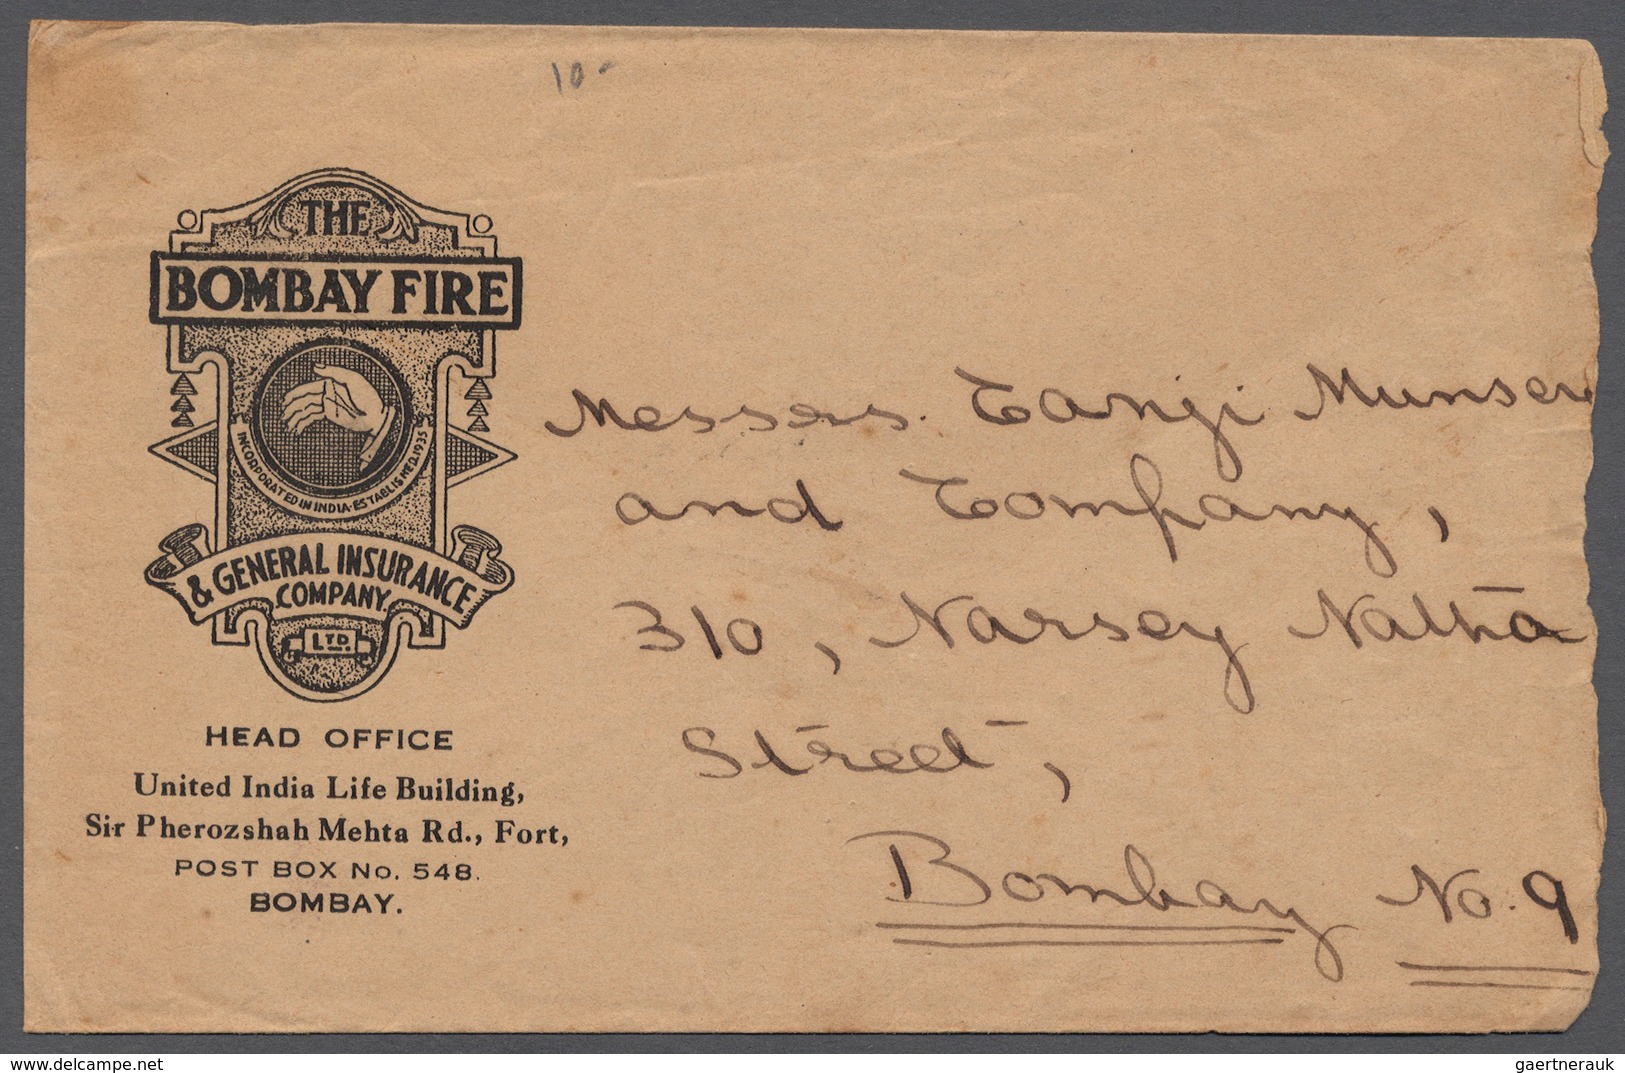 10-
THE
BOMBAY FIRE
INCORPORATED IN INDIA-ESTABLISHED.1935
& GENERAL INSURANCE
COMPANY
LTD.
HEAD OFFICE
United India Life Building,
Sir Pherozshah Mehta Rd., Fort,
POST BOX No. 548.
BOMBAY.
Messers.
and Company,
310, Narsey Natha
Street,
Bombay No. 9
gaertnerauk